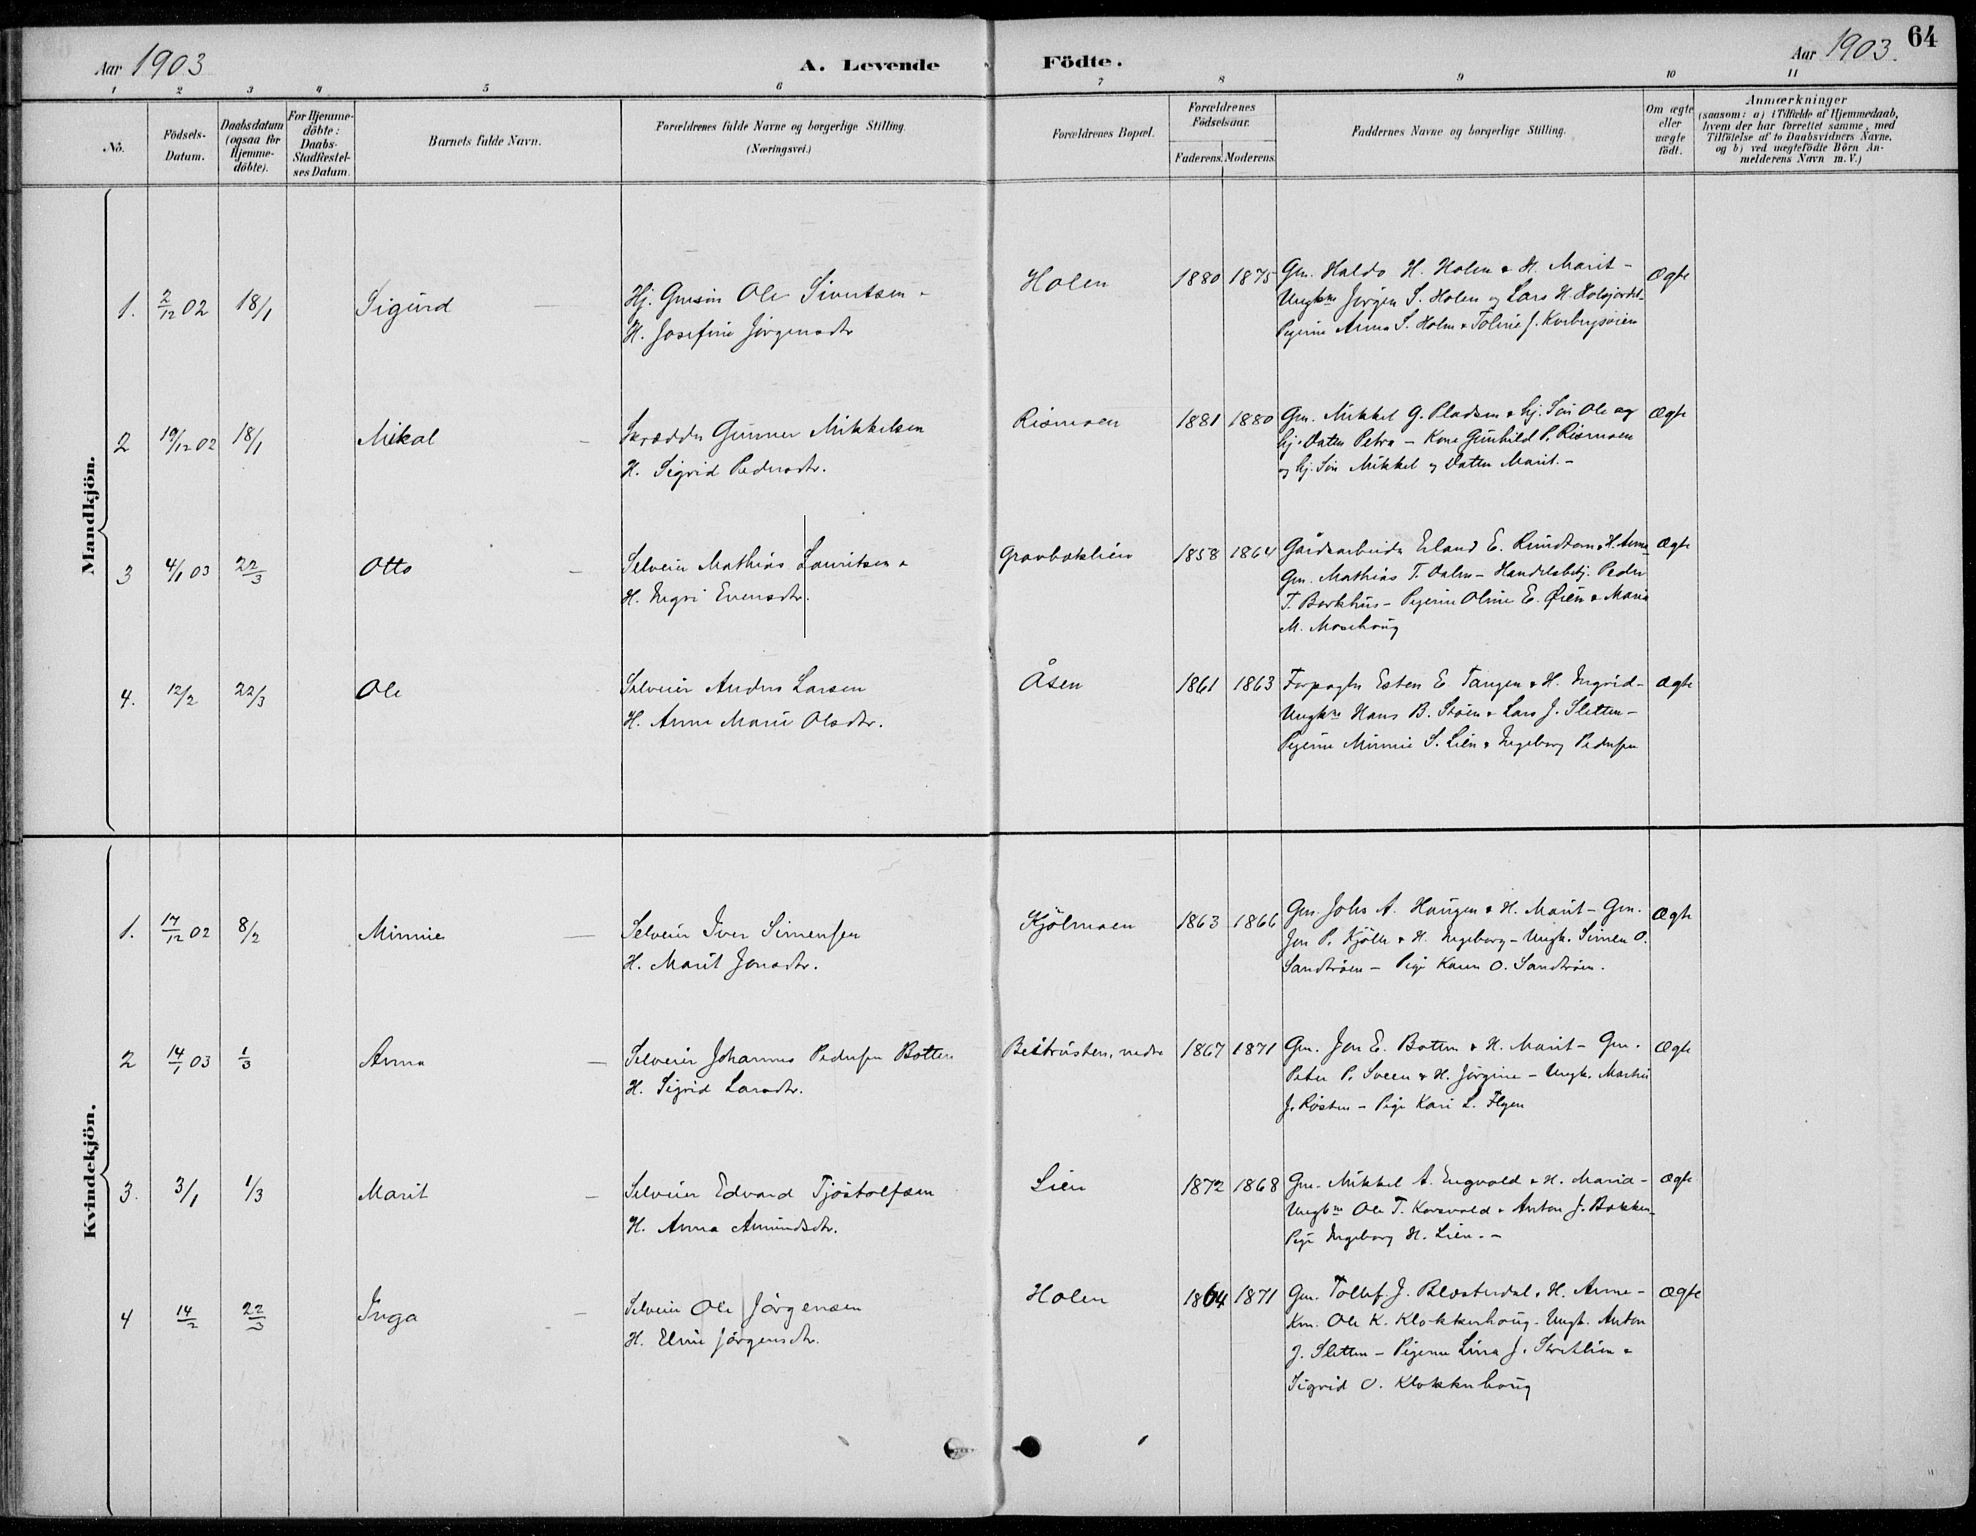 Aar 1903
A. Levende Födte.
Aar 1903.
64
1 2 3 4 5 6 7 8 9 10 11
No.
Födsels-Datum.
Daabsdatum (ogsaa for Hjemme-döbte).
For Hjemme-döbte: Daabs-Stadfæstel-ses Datum.
Barnets fulde Navn.
Forældrenes fulde Navne og borgerlige Stilling. (Næringsvei.)
Forældrenes Bopæl.
Forældrenes Födselsaar.
Faderens. Moderens.
Faddernes Navne og borgerlige Stilling.
Om ægte eller uægte födt.
Anmærkninger
(saasom: a) i Tilfælde af Hjemmedaab,
hvem der har forrettet samme, med
Tilföielse af to Daabsvidners Navne,
og b) ved uægtefödte Börn An-
melderens Navn m. V.)
Mandkjön.
1. 2/12 02 18/1 Sigurd
Hj. Ole Sivertsen -
H. Josefine Jörgensdtr
Holen 1880 1875
Gm. Haldo H. Holen & H. Marit -
Ungkne Jörgen S. Holen og Lars H.
Pigerne Anna S. Holen & Toline J.
Ægte
2 19/12 02 18/1 Mikal
Skrædder Gunner Mikkelsen
H. Sigrid Pedersdtr.
Rismoen 1881 1880
Gm. Mikkel G. Pladsen & hj. Sön Ole og
hj. Datter Petra - Kone Gunhild P. Rismoen
og hj. Sön Mikkel og Datter Marit. -
Ægte
3 4/1 03 22/3 Otto
Selveier Mathias Lauritsen &
H. Ingri Evensdtr.
Gravbaklien 1858 1864
Gårdsarbeider Erland E. & H. Anne
Gm. Mathias T. Dalen - Handelsbetj. Peder
T. Barkhus - Pigerne Oline E. Øien & Maria
M. Mosehoug
Ægte
4. 12/2 22/3 Ole
Selveier Anders Larsen
H. Anne Marie Olsdtr.
Åsen 1861 1863
Forpagter Esten E. Tangen & H. Ingrid -
Ungkne Hans B. Stöen & Lars J. Sletten -
Pigerne Minnie S. Lien & Ingeborg Pedersen
Ægte
Kvindekjön.
1. 17/12 02 8/2 Minnie
Selveier Iver Simensen
H. Marit Jonsdtr.
Kjölmoen 1863 1866
Gm. Johs A. Haugen & H. Marit - Gm.
Jon P. Kjöllm & H. Ingeborg - Ungk. Simen O.
Sandtröen - Pige Karen O. Sandtröen.
Ægte
2 14/1 03 1/3 Anna
Selveier Johannes Pedersen Botten
H. Sigrid Larsdtr.
nedre 1867 1871
Gm. Jon E. Botten & H. Marit - Gm.
Peter P. Sveen & H. Jörgine - Ungk. Martin
J. Rösten - Pige Kari L. Flyen
Ægte
3. 3/1 1/3 Marit
Selveier Edvard Tjöstolfsen
H. Anna Amundsdtr.
Lien 1872 1868
Gm. Mikkel A. Engvold & H. Maria -
Ungkne Ole T. Korsvold & Anton J. Bakken -
Pige Ingeborg H. Lien. -
Ægte
4 14/2 22/3 Inga
Selveier Ole Jörgensen
H. Eline Jörgensdtr.
Holen 1864 1871
Gm. Tollef J. Blæsterdal & H. Anne -
Km. Ole K. Klokkerhoug - Ungk. Anton
J. Sletten - Pigerne Lina J. &
Sigrid O. Klokkerhoug
Ægte